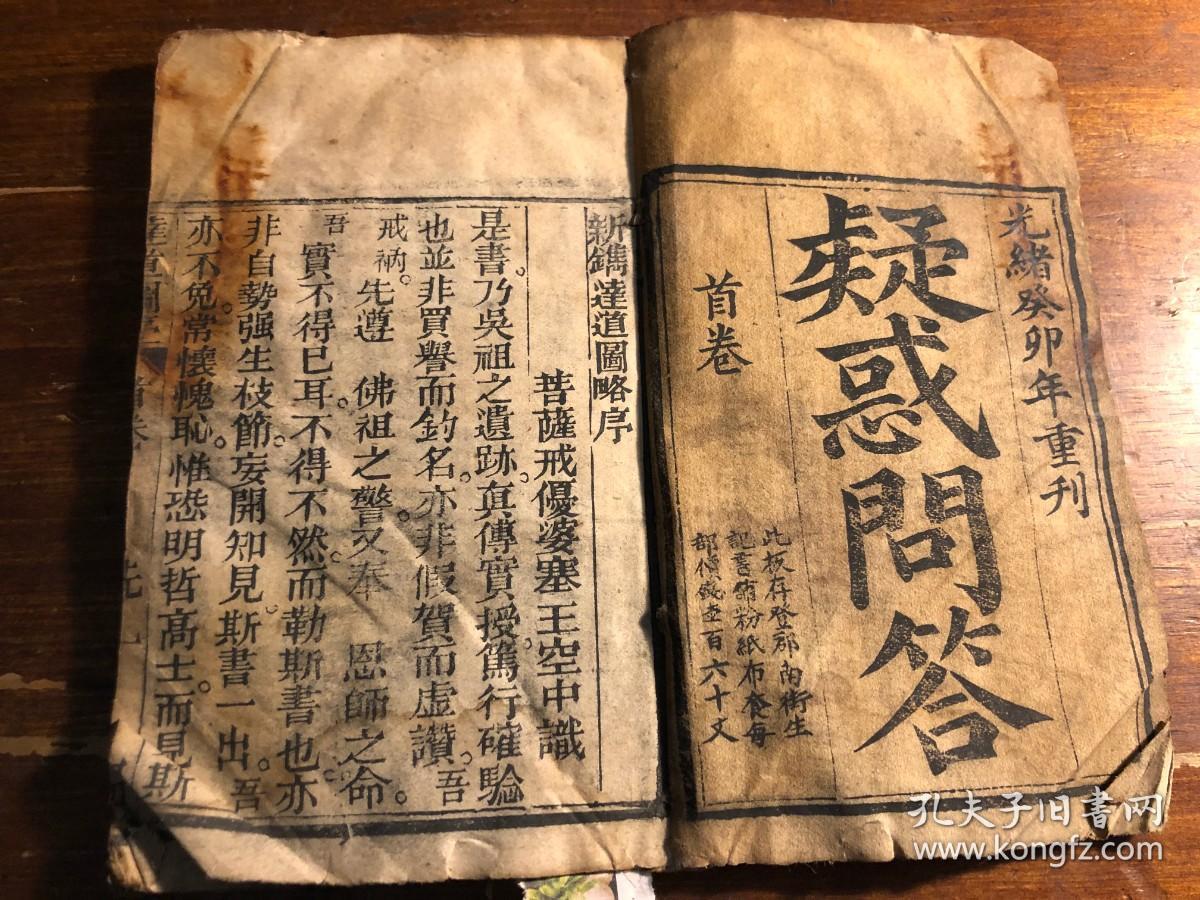 光緒癸卯年重刊
疑惑問答
首卷
此板存登郡南街生
記書鋪粉紙布套每
部價錢壹百六十文
新鐫達道圖略序
菩薩戒優婆塞王空中識
是書。乃吳祖之遺跡。真傳實授。篤行確驗
也並非買譽而釣名。亦非假賀而虛讚。吾
戒衲。先遵 佛祖之警。又奉 恩師之命。
吾實不得已耳。不得不然。而勒斯書也。亦
非自勢强生枝節。妄開知見。斯書一出。吾
亦不免常懷愧恥。惟恐明哲高士。而見斯
達道圖
首卷
孔夫子旧书网
www.kongfz.com